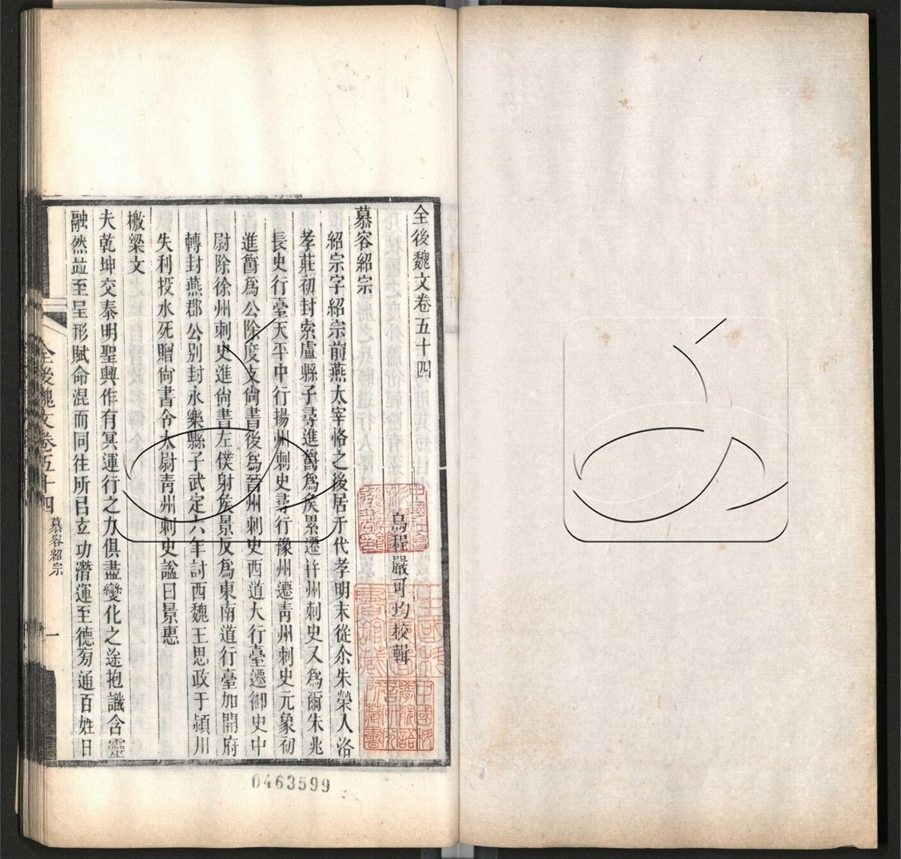 全後魏文卷五十四
烏程嚴可均校輯
慕容紹宗
紹宗字紹宗前燕太宰恪之後居于代孝明末從尒朱榮入洛
孝莊初封索盧縣子尋進爵爲矦累遷幷州刺史又爲爾朱兆
長史行臺天平中行揚州刺史尋行豫州遷靑州刺史元象初
進爵爲公除度支尙書後爲晉州刺史西道大行臺遷御史中
尉除徐州刺史進尙書左僕射矦景反爲東南道行臺加開府
轉封燕郡公別封永樂縣子武定六年討西魏王思政于潁川
失利投水死贈尙書令太尉靑州刺史諡曰景惠
檄梁文
夫乾坤交泰明聖興作有冥運行之力俱盡變化之途抱識含靈
融然竝至呈形賦命混而同往所㠯立功潛運至德旁通百姓日
全後魏文卷五十四
慕容紹宗
一
0463599